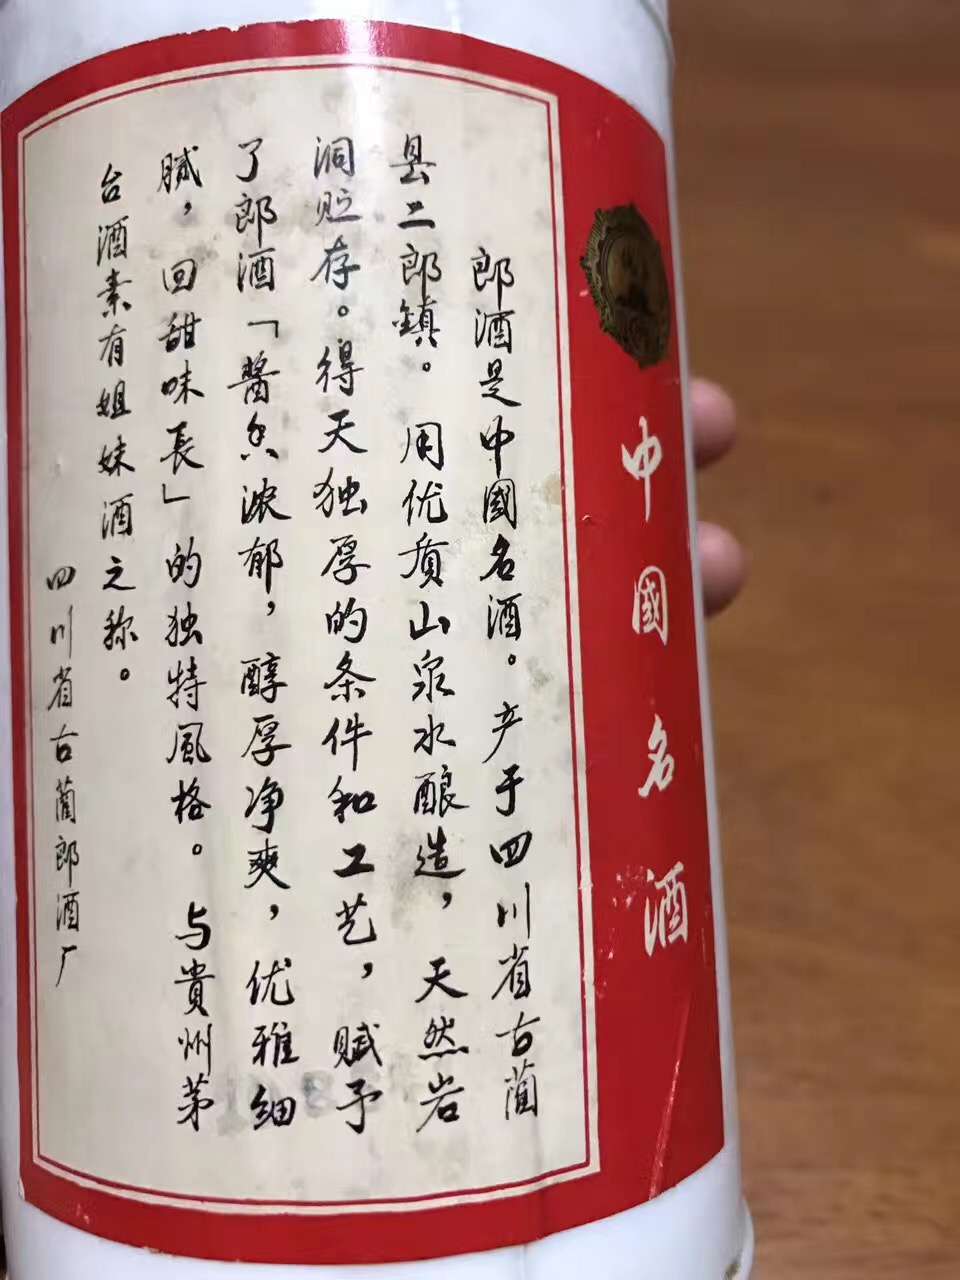 中國名酒
郎酒是中國名酒。产于四川省古蔺
县二郎鎮。用优质山泉水酿造，天然岩
洞贮存。得天独厚的条件和工艺，赋予
了郎酒「醬香浓郁，醇厚净爽，优雅细
腻，回甜味長」的独特風格。与貴州茅
台酒素有姐妹酒之称。
四川省古蔺郎酒厂